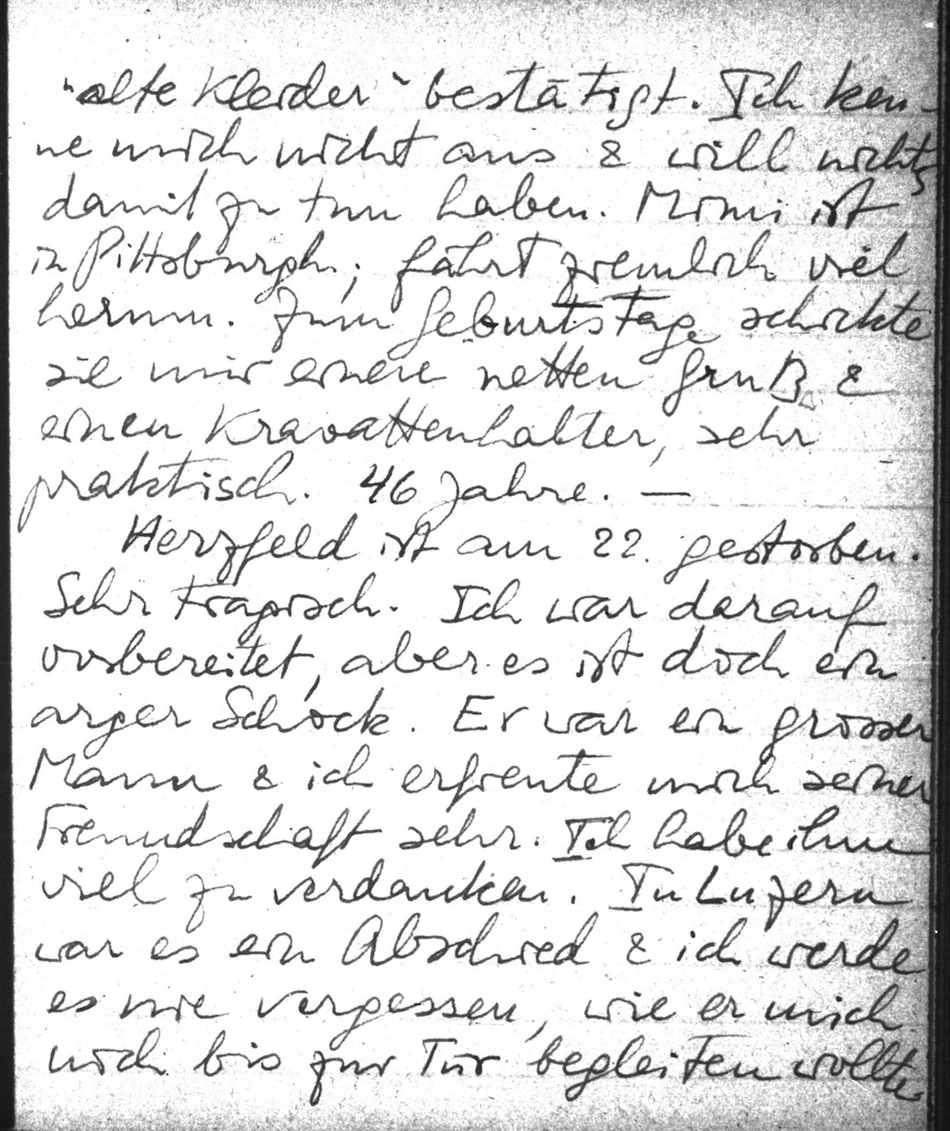 "alte Kleider" bestätigt. Ich ken-
ne mich nicht aus & will nichts
damit zu tun haben. Mimi ist
in Pittsburgh; fährt ziemlich viel
herum. Zum Geburtstage schickte
sie mir einen netten Gruß &
einen Kravattenhalter, sehr
praktisch. 46 Jahre. —
Herzfeld ist am 22. gestorben.
Sehr tragisch. Ich war darauf
vorbereitet, aber es ist doch ein
arger Schock. Er war ein grosser
Mann & ich erfreute mich seiner
Freundschaft sehr. Ich habe ihm
viel zu verdanken. In Luzern
war es ein Abschied & ich werde
es nie vergessen, wie er mich
noch bis zur Tür begleiten wollte